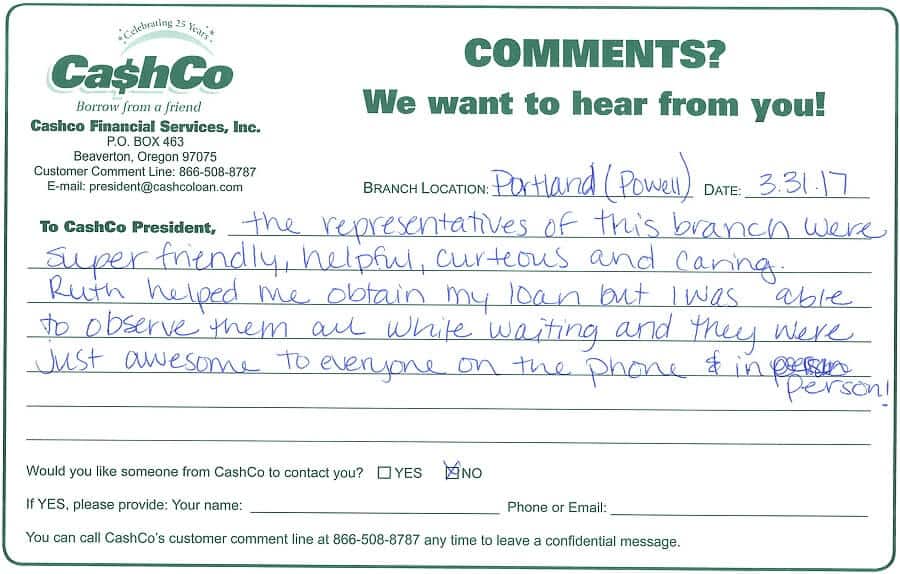 Celebrating 25 Years
Ca$hCo
Borrow from a friend
Cashco Financial Services, Inc.
P.O. BOX 463
Beaverton, Oregon 97075
Customer Comment Line: 866-508-8787
E-mail: president@cashcoloan.com
COMMENTS?
We want to hear from you!
BRANCH LOCATION: Portland (Powell) DATE: 3.31.17
To CashCo President, the representatives of this branch were
super friendly, helpful, curteous and caring.
Ruth helped me obtain my loan but I was able
to observe them all while waiting and they were
just awesome to everyone on the phone & in person
person!
Would you like someone from CashCo to contact you? YES NO
If YES, please provide: Your name: Phone or Email:
You can call CashCo's customer comment line at 866-508-8787 any time to leave a confidential message.